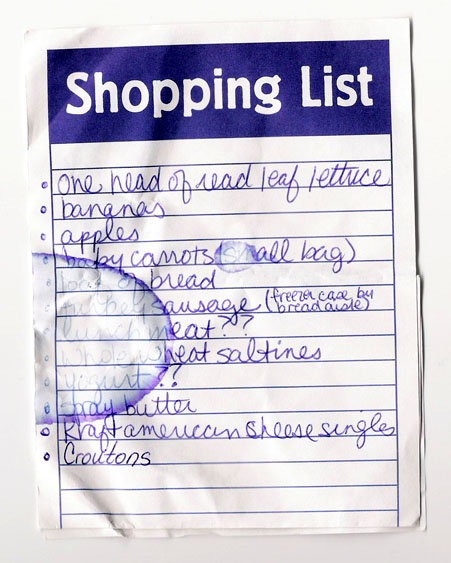 Shopping List
One head of read leaf lettuce
bananas
apples
baby carrots (small bag)
loaf of bread
sausage (freezer case by
bread aisle)
lunch meat??
whole wheat saltines
yogurt ??
spray butter
Kraft american sheese singles
Croutons